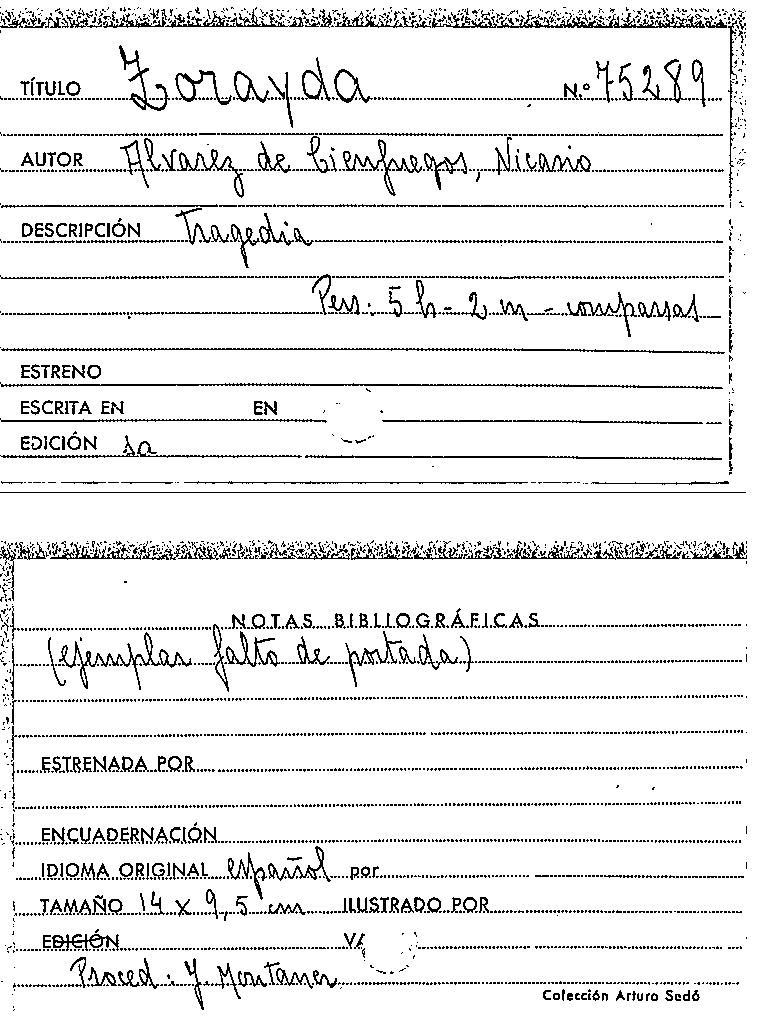 TÍTULO Zorayda N.º 75289
AUTOR Alvarez de Cienfuegos, Nicasio
DESCRIPCIÓN Tragedia
Pers: 5 h - 2 m - comparsas
ESTRENO
ESCRITA EN EN
EDICIÓN sa
NOTAS BIBLIOGRÁFICAS
(ejemplar falto de portada)
ESTRENADA POR
ENCUADERNACIÓN
IDIOMA ORIGINAL español por
TAMAÑO 14 x 9,5 cm ILUSTRADO POR
EDICIÓN
Proced: J. Montaner
Colección Arturo Sedó